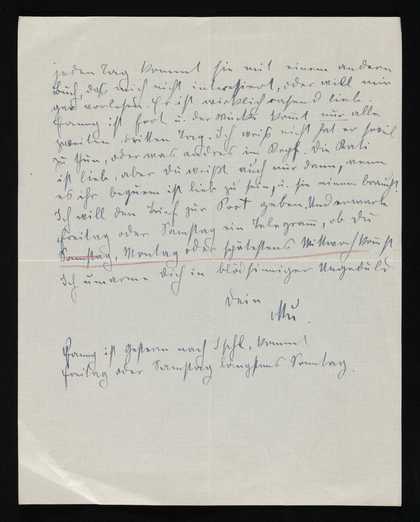 jeden Tag kommt sie mit einem andern
Buch, das mich nicht interessiert, oder will mir
gar vorlesen. Er ist wirklich rasend lieb.
Fanny ist fort u. der kommt nur alle
zweiten, dritten Tag. Ich weiß nicht hat er soviel
zu thun, oder was andres im Kopf. Die Kati
ist lieb, aber Du weißt auch nur dann, wenn
es ihr bequem ist lieb zu sein, u. sie einen braucht.
Ich will den Brief zur Post geben, und erwarte
Freitag oder Samstag ein Telegramm, ob du
Samstag, Montag oder spätestens Mittwoch kommst
Ich umarme Dich in blödsinniger Ungeduld
Dein
Mu.
Fanny ist gestern nach Ischl, kommt
Freitag oder Samstag längstens Sonntag.